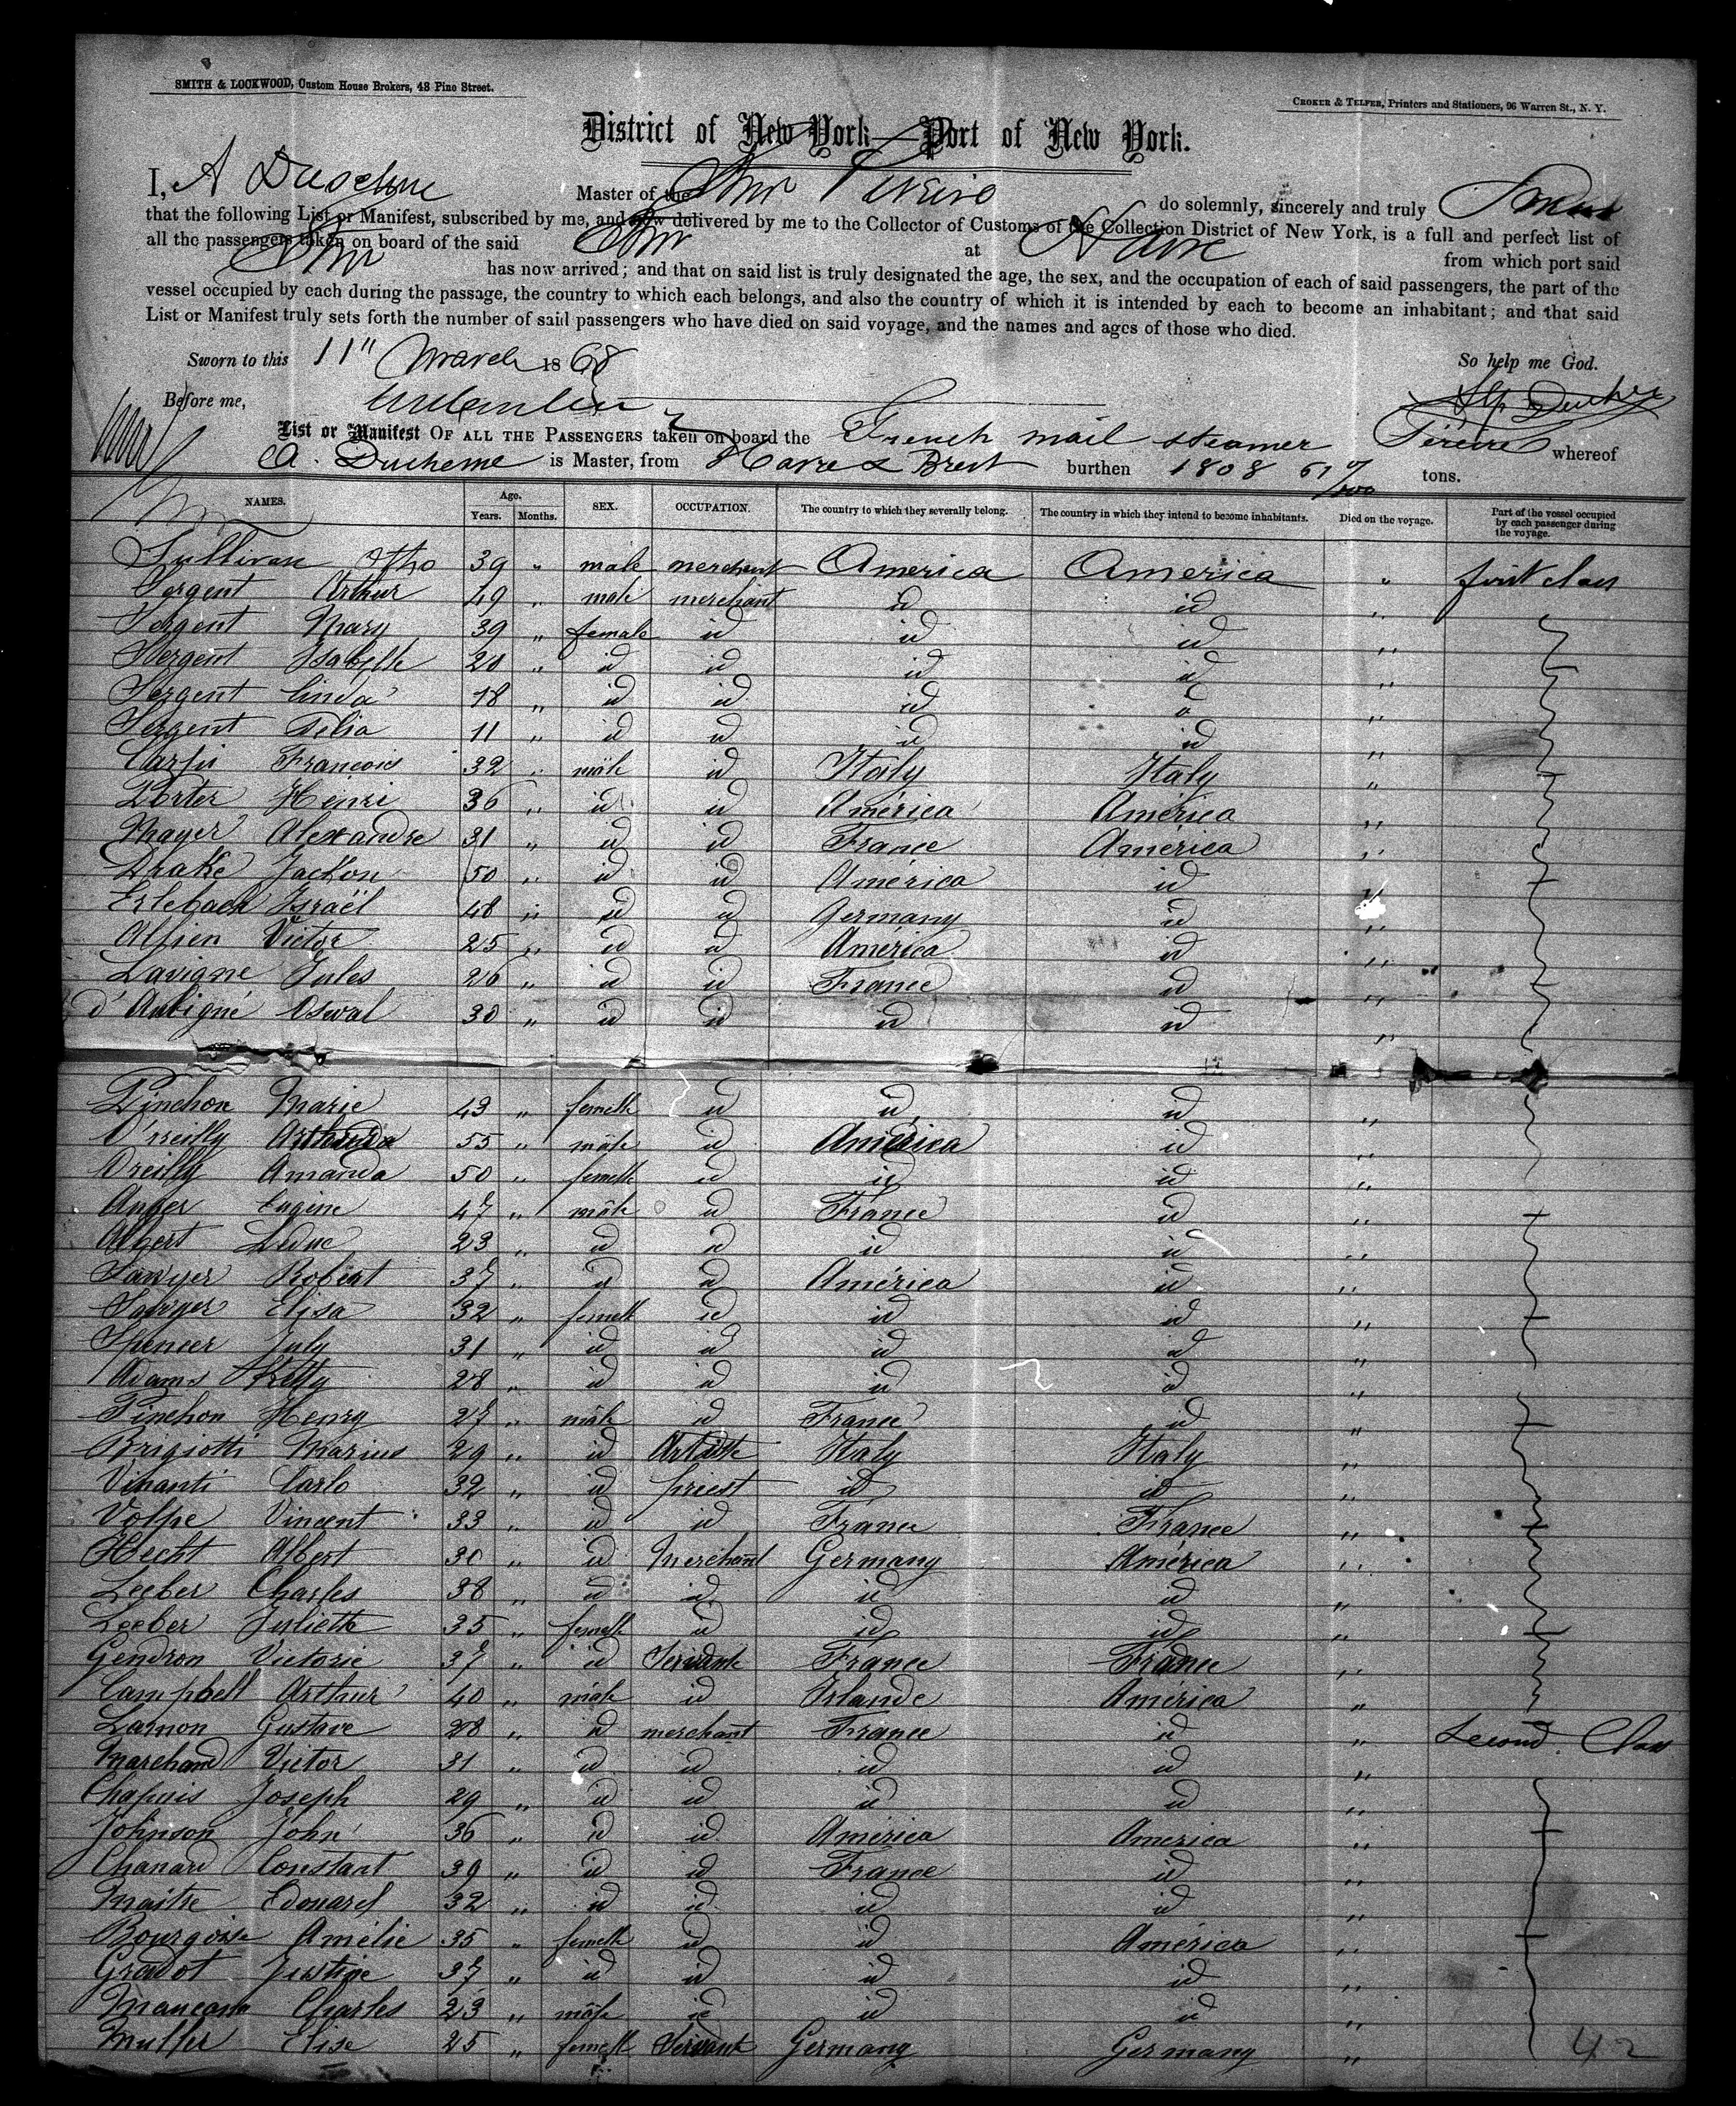 SMITH & LOCKWOOD, Custom House Brokers, 43 Pine Street.
CROKER & TELFER, Printers and Stationers, 96 Warren St., N. Y.
District of New York—Port of New York.
I, A Duchesne Master of the Stmr Pereire do solemnly, sincerely and truly Swear
that the following List or Manifest, subscribed by me, and now delivered by me to the Collector of Customs of the Collection District of New York, is a full and perfect list of
all the passengers taken on board of the said Stmr at Havre from which port said
Stmr has now arrived; and that on said list is truly designated the age, the sex, and the occupation of each of said passengers, the part of the
vessel occupied by each during the passage, the country to which each belongs, and also the country of which it is intended by each to become an inhabitant; and that said
List or Manifest truly sets forth the number of said passengers who have died on said voyage, and the names and ages of those who died.
Sworn to this 11" March 1868 So help me God.
Before me,
List or Manifest OF ALL THE PASSENGERS taken on board the French mail steamer Péreire whereof
A. Duchesne is Master, from Havre & Brest burthen 1808 61/100 tons.
NAMES. Age. Years. Months. SEX. OCCUPATION. The country to which they severally belong. The country in which they intend to become inhabitants. Died on the voyage. Part of the vessel occupied by each passenger during the voyage.
Sullivan Otho 39 " male merchant America America " first class
Sergent Arthur 49 " male merchant id id "
Sergent Mary 39 " female id id id "
Sergent Isabelle 20 " id id id id "
Sergent Linda 18 " id id id id "
Sergent Délia 11 " id id id id "
François 32 " mâle id Italy Italy "
Porter Henri 36 " id id América América "
Mayer Alexandre 31 " id id France América "
Drake Jackon 50 " id id América id "
Erlebach Israël 48 " id id Germany id "
Alsien Victor 25 " id id América id "
Lavigne Jules 26 " id id France id "
d'Aubigné Oswal 30 " id id id id "
Pinchon Marie 43 " femelle id id id "
O'rreilly 55 " mâle id América id "
Oreilly Amanda 50 " femelle id id id "
Auger Eugine 47 " mâle id France id "
Algert Leduc 23 " id id id id "
Sawyer Robert 37 " id id América id "
Sawyer Elisa 32 " femelle id id id "
Spencer July 31 " id id id id "
Adams Ketty 28 " id id id id "
Pinchon Henry 27 " mâle id France id "
Brigiotti Marius 29 " id Artiste Italy Italy "
Vinanti Carlo 32 " id priest id id "
Volpe Vincent 33 " id id France France "
Hecht Albert 30 " id Merchand Germany América "
Leeber Charles 38 " id id id id "
Leeber Juliette 35 " femelle id id id "
Gendron Victorie 37 " id Servante France France "
Campbell Arthur 40 " mâle id Irlande América "
Lamon Gustave 28 " id merchant France id " Second Class
Marchand Victor 31 " id id id id "
Chapuis Joseph 29 " id id id id "
Johnson John 36 " id id América America "
Chanard Constant 39 " id id France id "
Maitre Edouard 32 " id id id id "
Bourgoise Amélie 35 " femelle id id América "
Gradot Justine 37 " id id id id "
Charles 23 " mâle id id id "
Muller Elise 25 " femelle Servante Germany Germany "
42